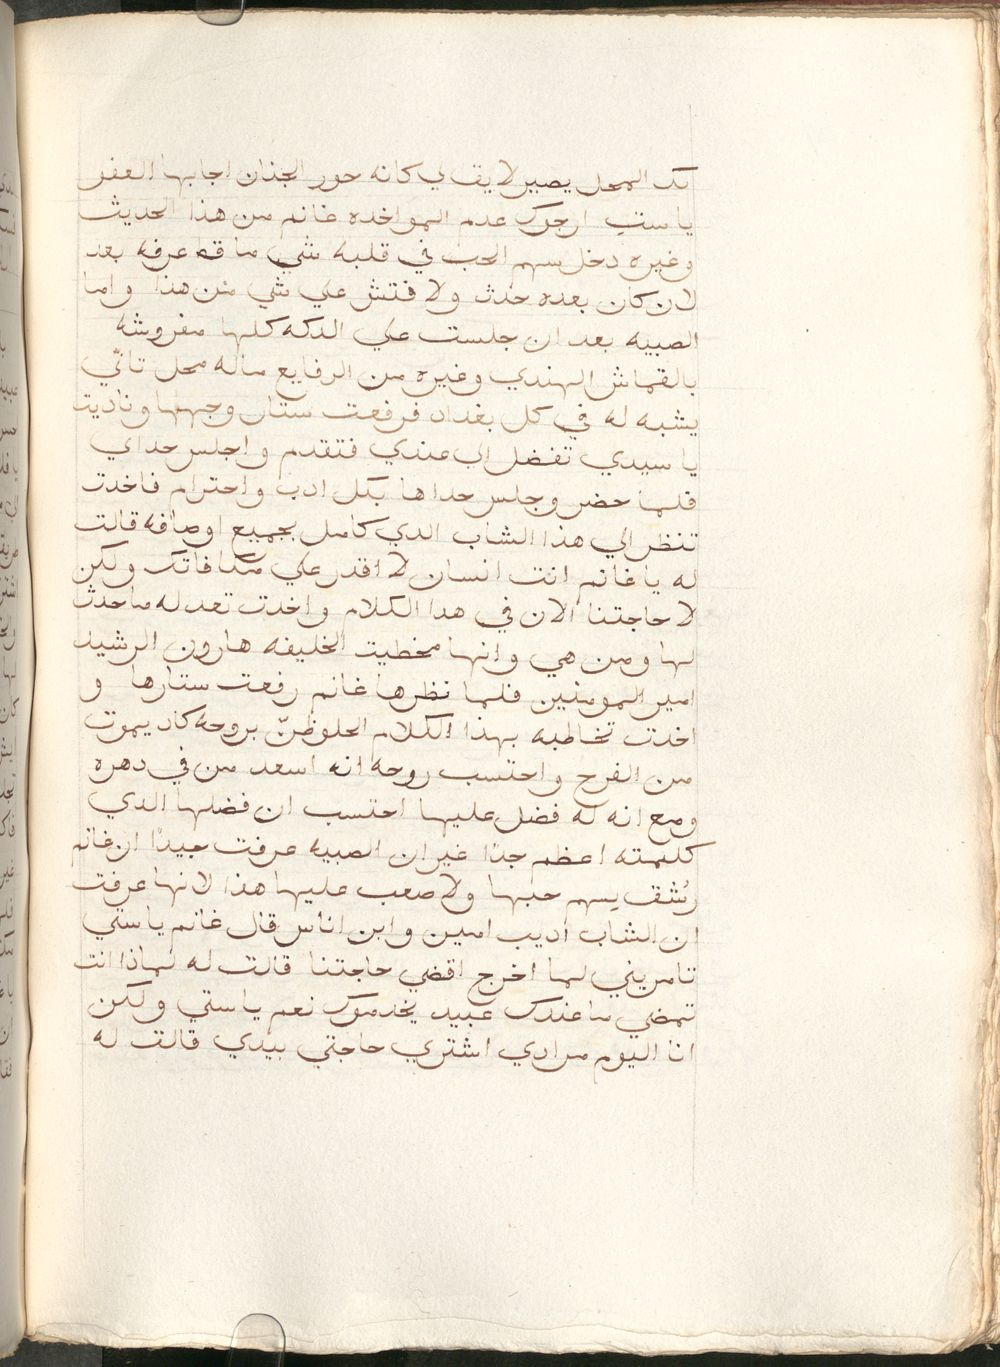 بك المحل يصير لايق لي كانه حور الجنان اجابها العفو
يا ستِ ارجوك عدم المواخده غانم من هذا الحديث
وغيره دخل سهم الحب في قلبه شي ما قط عرفه بعد
لان كان بعده حدث ولا فتش علي شي من هذا واما
الصبيه بعد ان جلست علي الدكه كلها مفروشه
بالقماش الهندي وغيره من الرفايع ماله محل تاني
يشبه له في كل بغداد فرفعت ستار وجهها وناديت
يا سيدي تفضل الي عندي فتقدم واجلس حداي
فلما حضر وجلس حداها بكل ادب واحترام فاخدت
تنظر الي هذا الشاب الدي كامل بجميع اوصافه قالت
له يا غانم انت انسان لا اقدر علي مكافاتك ولكن
لا حاجتنا الان في هدا الكلام واخدت تعد له ما حدث
لها ومن هي وانها مخطيت الخليفه هارون الرشيد
امير المومنين فلما نظرها غانم رفعت ستارها و
اخدت تخاطبه بهذا الكلام الحلو ظنّ بروحه كاد يموت
من الفرح واحتسب روحه انه اسعد من في دهره
ومع انه له فضل عليها احتسب ان فضلها الدي
كلمته اعظم جدًا غير ان الصبيه عرفت جيدًا ان غانم
رُشق بسهم حبها ولا صعب عليها هذا لانها عرفت
ان الشاب أديب امين وابن اناس قال غانم يا ستي
تامريني لما اخرج اقضي حاجتنا قالت له لماذا انت
تمضي ما عندك عبيد يخدموك نعم يا ستي ولكن
انا اليوم مرادي اشتري حاجتي بيدي قالت له